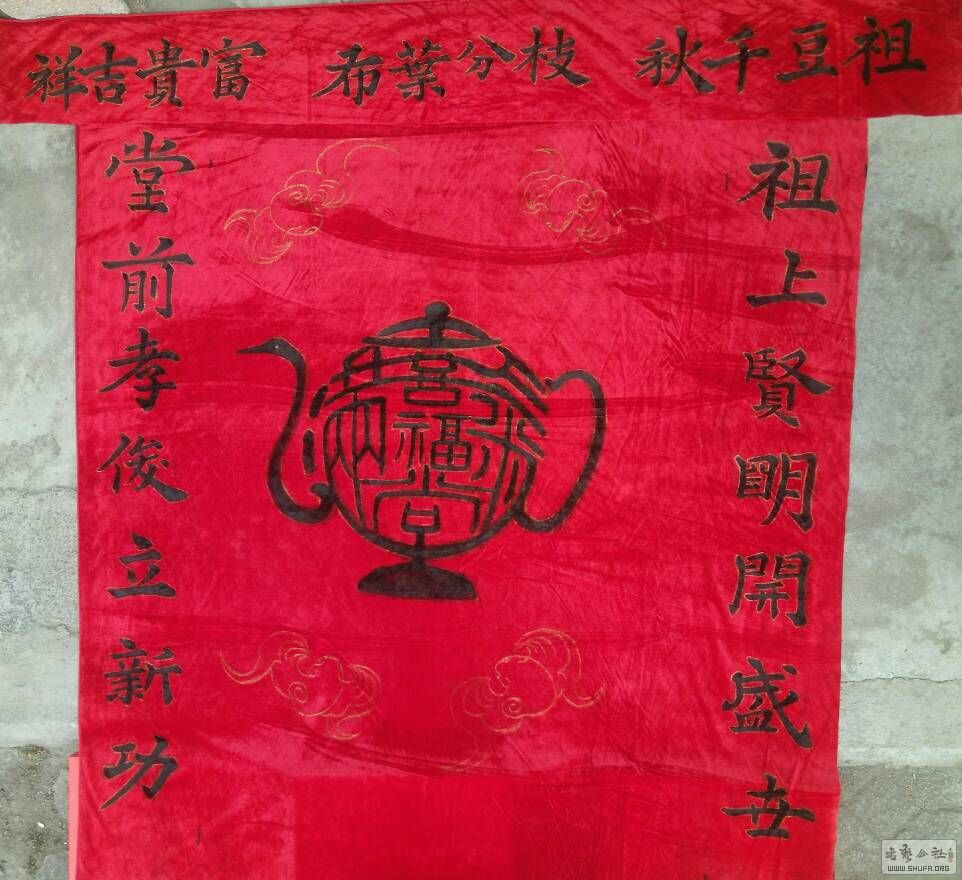 祖豆千秋 枝分葉布 富貴吉祥
祖上賢明開盛世
堂前孝俊立新功
喜福堂
WWW.SHUFA.ORG